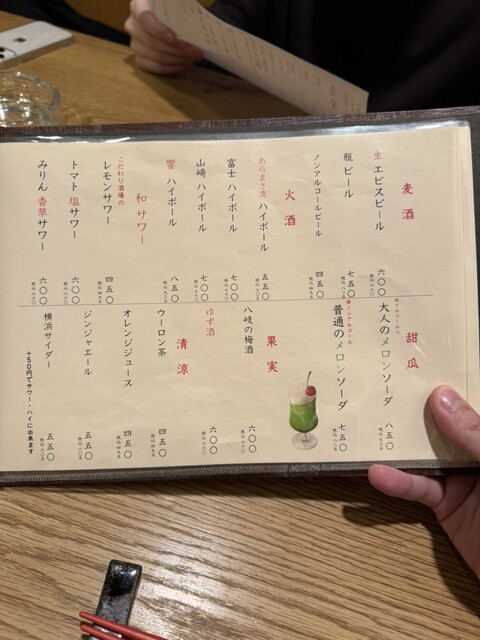 麦酒
生 エビスビール
六〇〇
税込 六六〇
瓶 ビール
七五〇
税込 八二五
ノンアルコールビール
四五〇
税込 四九五
火酒
あらまさ流 ハイボール
五五〇
税込 六〇五
富士 ハイボール
七〇〇
税込 七七〇
山崎 ハイボール
七〇〇
税込 七七〇
響 ハイボール
八五〇
税込 九三五
和サワー
こだわり酒場の
レモンサワー
四五〇
税込 四九五
トマト 塩サワー
六〇〇
税込 六六〇
みりん 香草サワー
六〇〇
税込 六六〇
甜瓜
大人のメロンソーダ
八五〇
税込 九三五
※ノンアルコール
普通のメロンソーダ
七五〇
税込 八二五
果実
八岐の梅酒
六〇〇
税込 六六〇
ゆず酒
六〇〇
税込 六六〇
清涼
ウーロン茶
四五〇
税込 四九五
オレンジジュース
四五〇
税込 四九五
ジンジャエール
五五〇
税込 六〇五
横浜サイダー
五五〇
税込 六〇五
+50円でサワー・ハイに出来ます